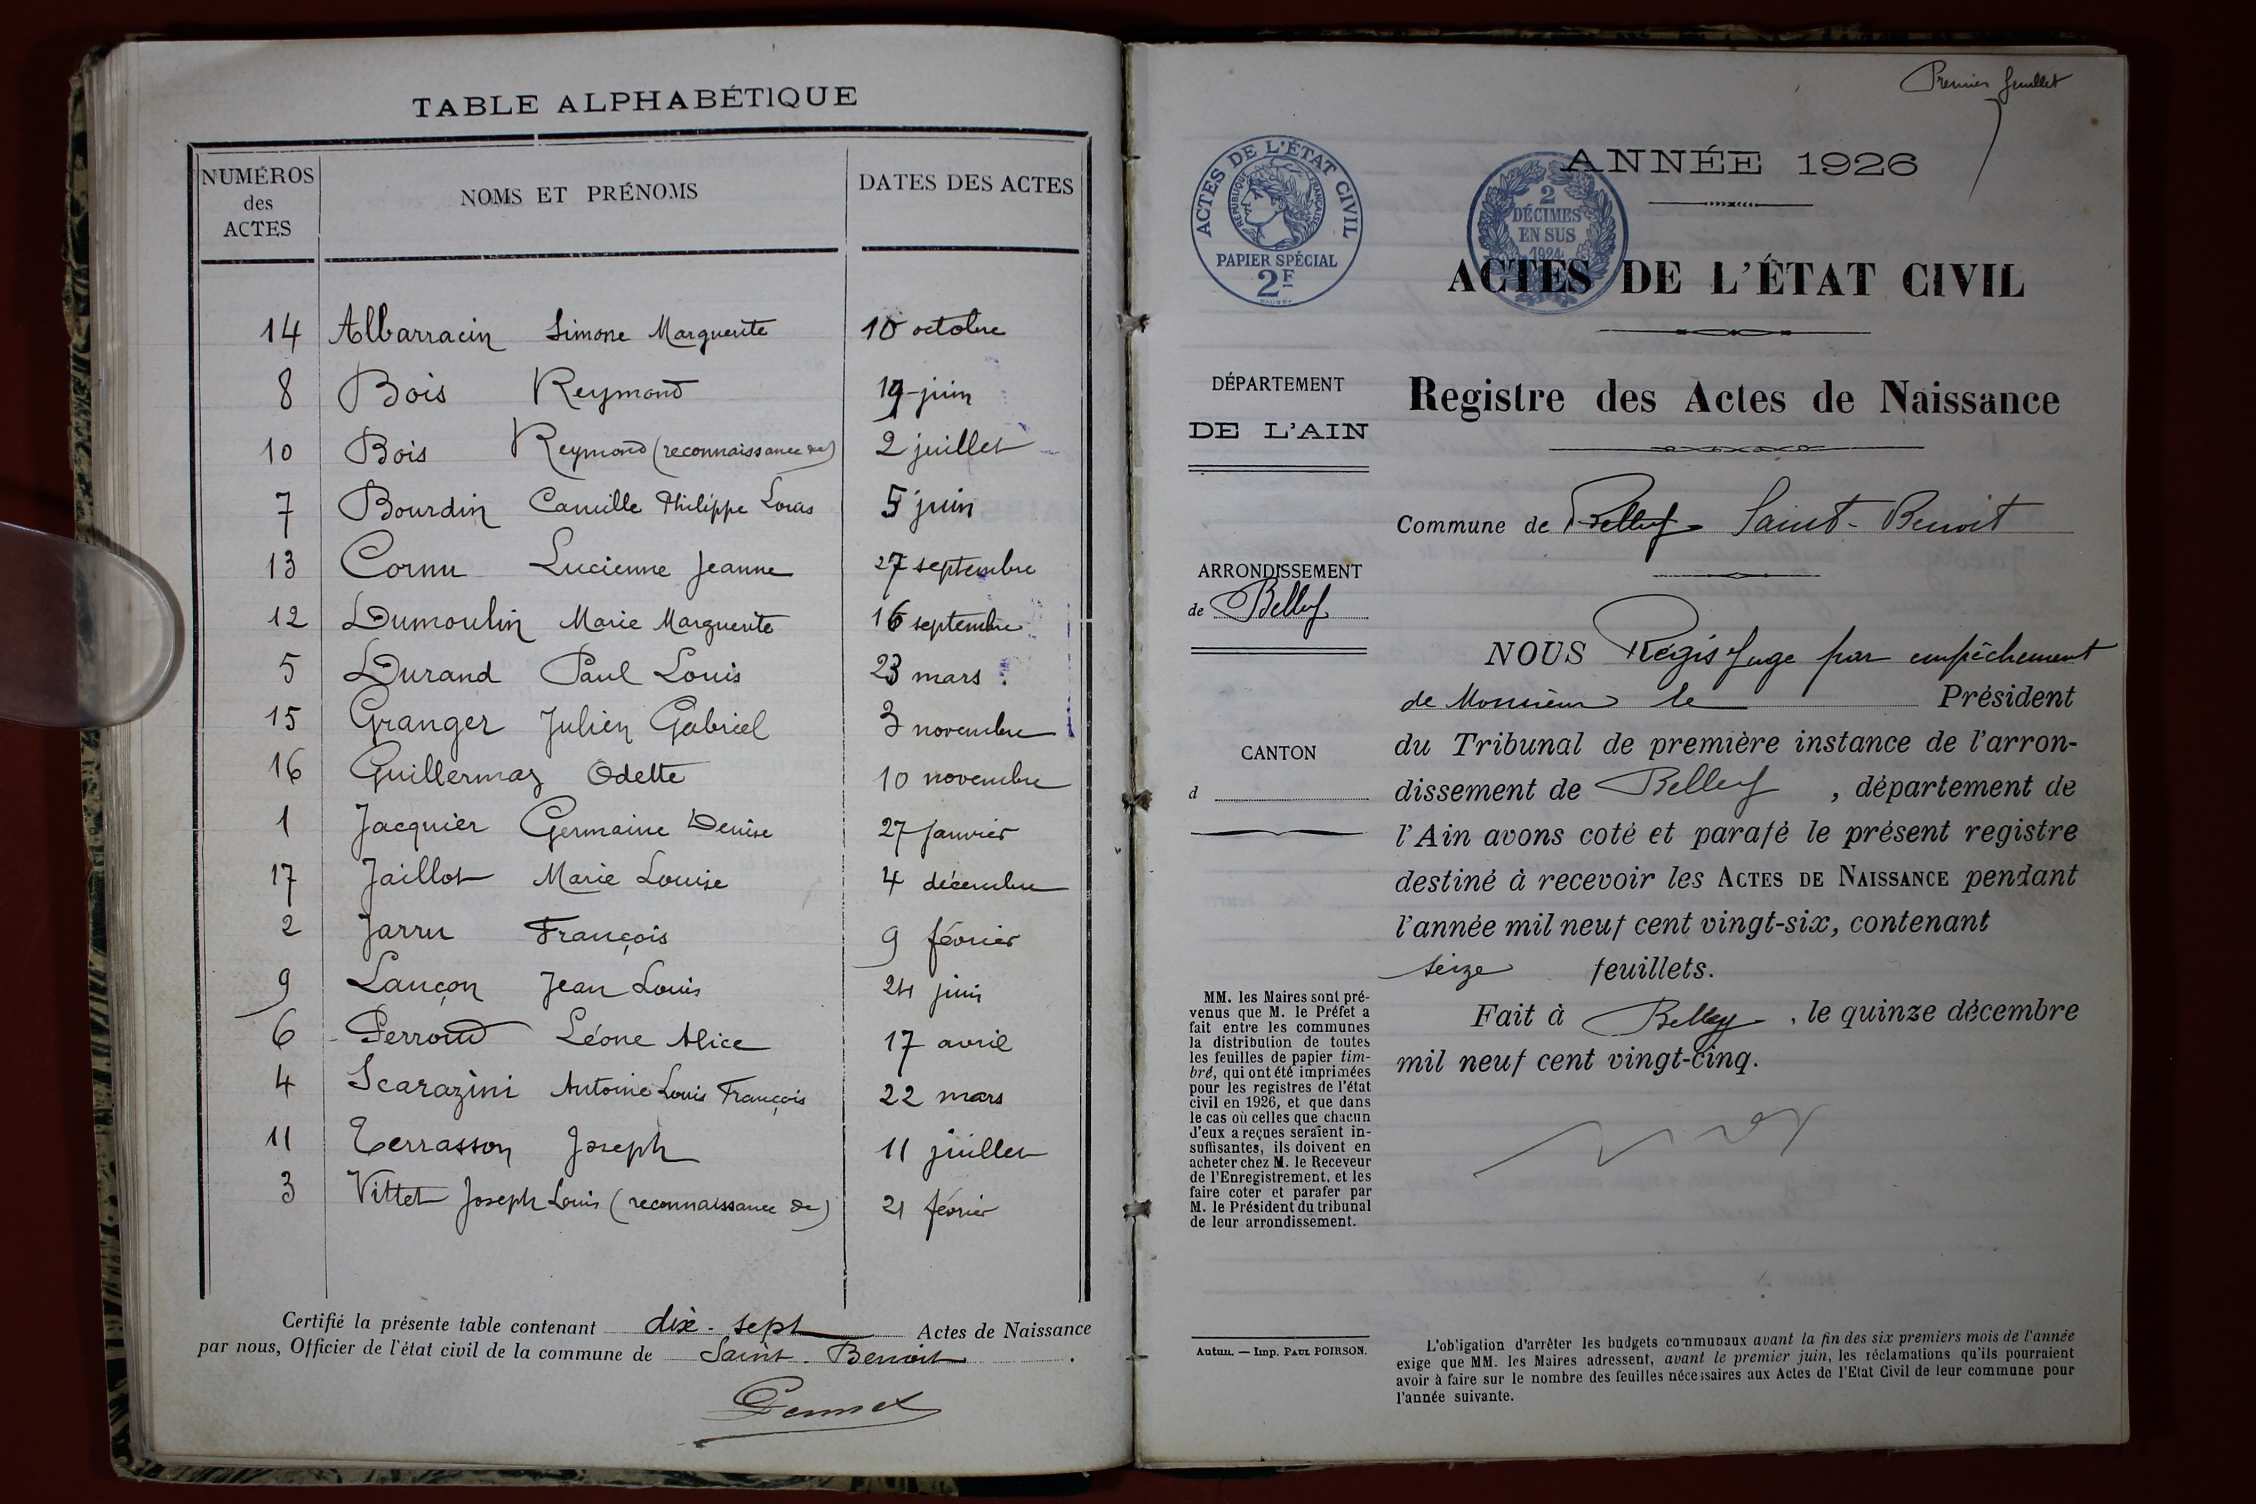 TABLE ALPHABÉTIQUE
NUMÉROS des ACTES NOMS ET PRÉNOMS DATES DES ACTES
14 Albarracin Simone Marguerite 10 octobre
8 Bois Reymond 19 juin
10 Bois Reymond (reconnaissance de) 2 juillet
7 Bourdin Camille Philippe Louis 5 juin
13 Cornu Lucienne Jeanne 27 septembre
12 Dumoulin Marie Marguerite 16 septembre
5 Durand Paul Louis 23 mars
15 Granger Julien Gabriel 3 novembre
16 Guillermaz Odette 10 novembre
1 Jacquier Germaine Denise 27 janvier
17 Jaillot Marie Louise 4 décembre
2 Jarru François 9 février
9 Lançon Jean Louis 24 juin
6 Perroud Léone Alice 17 avril
4 Scarazini Antoine Louis François 22 mars
11 Terrasson Joseph 11 juillet
3 Vittet Joseph Louis (reconnaissance de) 21 février
Certifié la présente table contenant dix-sept Actes de Naissance
par nous, Officier de l'état civil de la commune de Saint-Benoit.
Premier feuillet
ACTES DE L'ÉTAT CIVIL
RÉPUBLIQUE FRANÇAISE
PAPIER SPÉCIAL
2F
2
DÉCIMES
EN SUS
1924
ANNÉE 1926
ACTES DE L'ÉTAT CIVIL
DÉPARTEMENT
DE L'AIN
ARRONDISSEMENT
de Belley
CANTON
d
MM. les Maires sont pré-
venus que M. le Préfet a
fait entre les communes
la distribution de toutes
les feuilles de papier tim-
bré, qui ont été imprimées
pour les registres de l'état
civil en 1926, et que dans
le cas où celles que chacun
d'eux a reçues seraient in-
suffisantes, ils doivent en
acheter chez M. le Receveur
de l'Enregistrement, et les
faire coter et parafer par
M. le Président du tribunal
de leur arrondissement.
Autun. — Imp. PAUL POIRSON.
Registre des Actes de Naissance
Commune de Saint-Benoit
NOUS Régis Juge par empêchement
de Monsieur le Président
du Tribunal de première instance de l'arron-
dissement de Belley, département de
l'Ain avons coté et parafé le présent registre
destiné à recevoir les ACTES DE NAISSANCE pendant
l'année mil neuf cent vingt-six, contenant
seize feuillets.
Fait à Belley, le quinze décembre
mil neuf cent vingt-cinq.
L'obligation d'arrêter les budgets communaux avant la fin des six premiers mois de l'année
exige que MM. les Maires adressent, avant le premier juin, les réclamations qu'ils pourraient
avoir à faire sur le nombre des feuilles nécessaires aux Actes de l'Etat Civil de leur commune pour
l'année suivante.